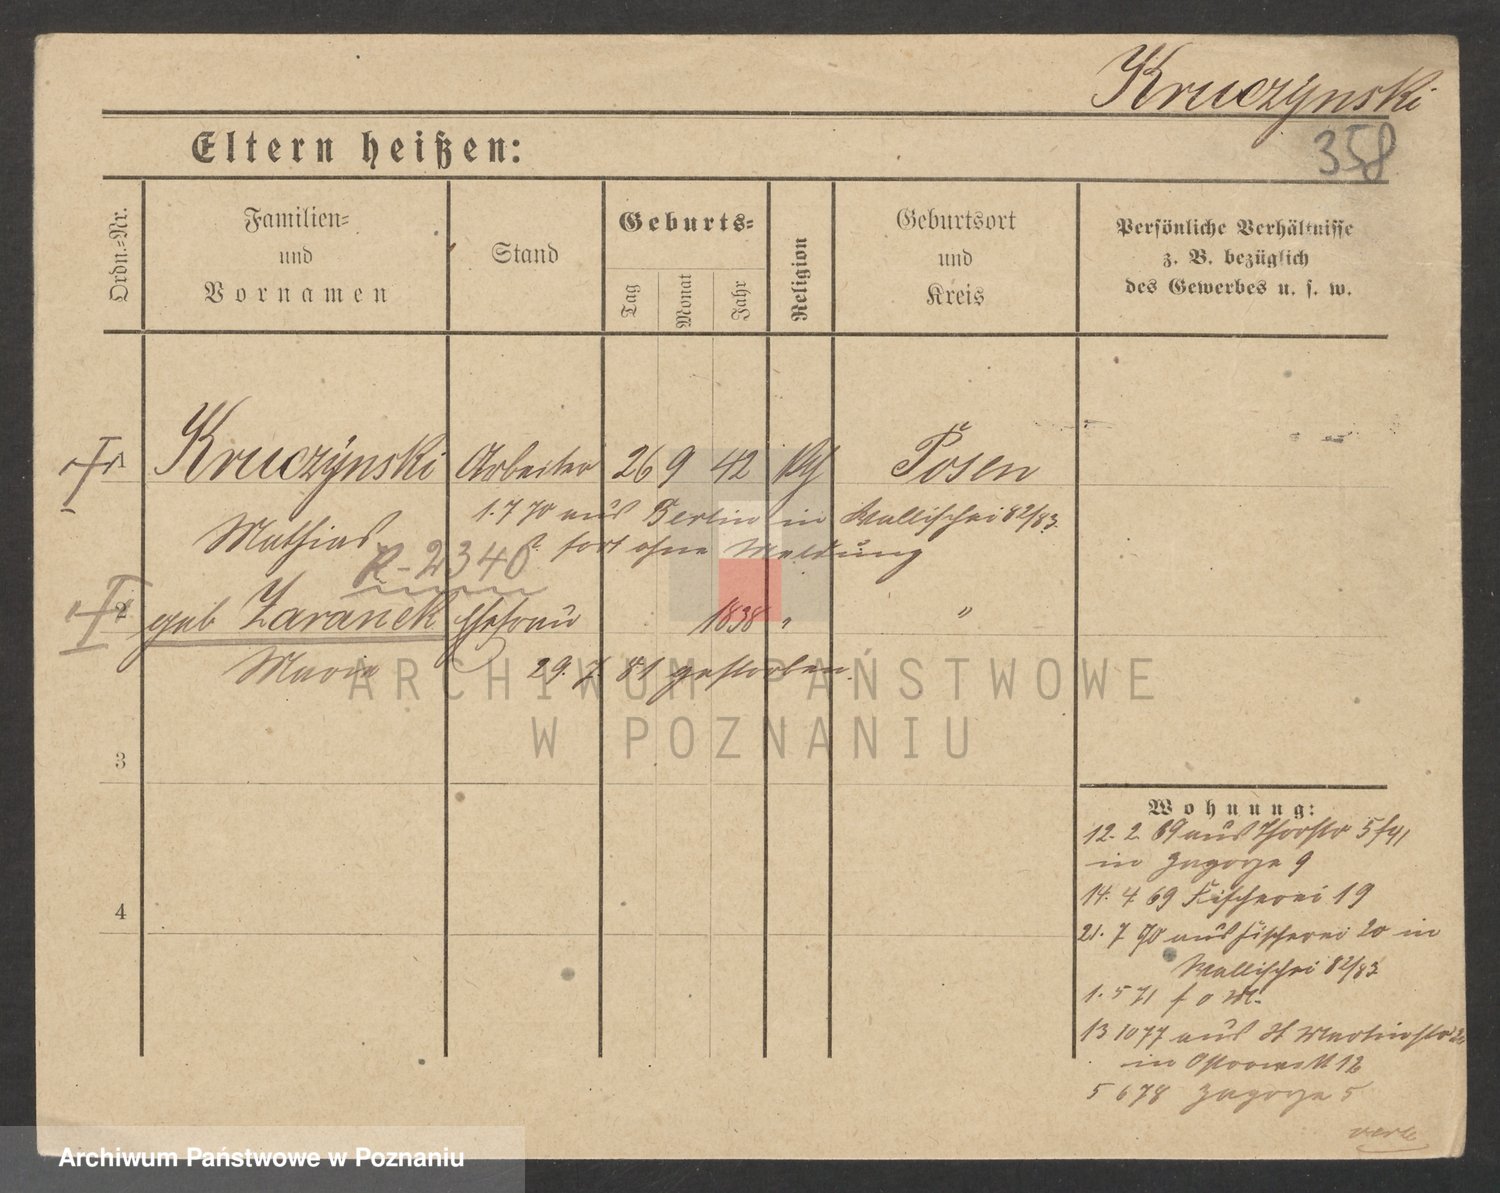 Kruczynski
358
Eltern heißen:
Ordn.=Nr.
Familien=
und
Vornamen
Stand
Geburts=
Tag
Monat
Jahr
Religion
Geburtsort
und
Kreis
Persönliche Verhältnisse
z. B. bezüglich
des Gewerbes u. s. w.
1 Kruczynski Arbeiter 26 9 42 Posen
1. 7 70 aus Berlin in Wallischei 82/83.
Mathias fort ohne Meldung
R-2340
2 geb Zaranek Ehefrau 1838 " "
Maria 29. 7. 81 gestorben.
ARCHIWUM PAŃSTWOWE
W POZNANIU
3
4
Wohnung:
12. 2. 69 aus Thorstr
in Zagorze 9
14. 4 69 Fischerei 19
21. 7 70 aus Fischerei 20 in
Wallischei 82/83
1. 5 71 f o M.
13 10 77 aus St Martinstr
in Ostrowek 12
5 6 78 Zagorze 5
Archiwum Państwowe w Poznaniu